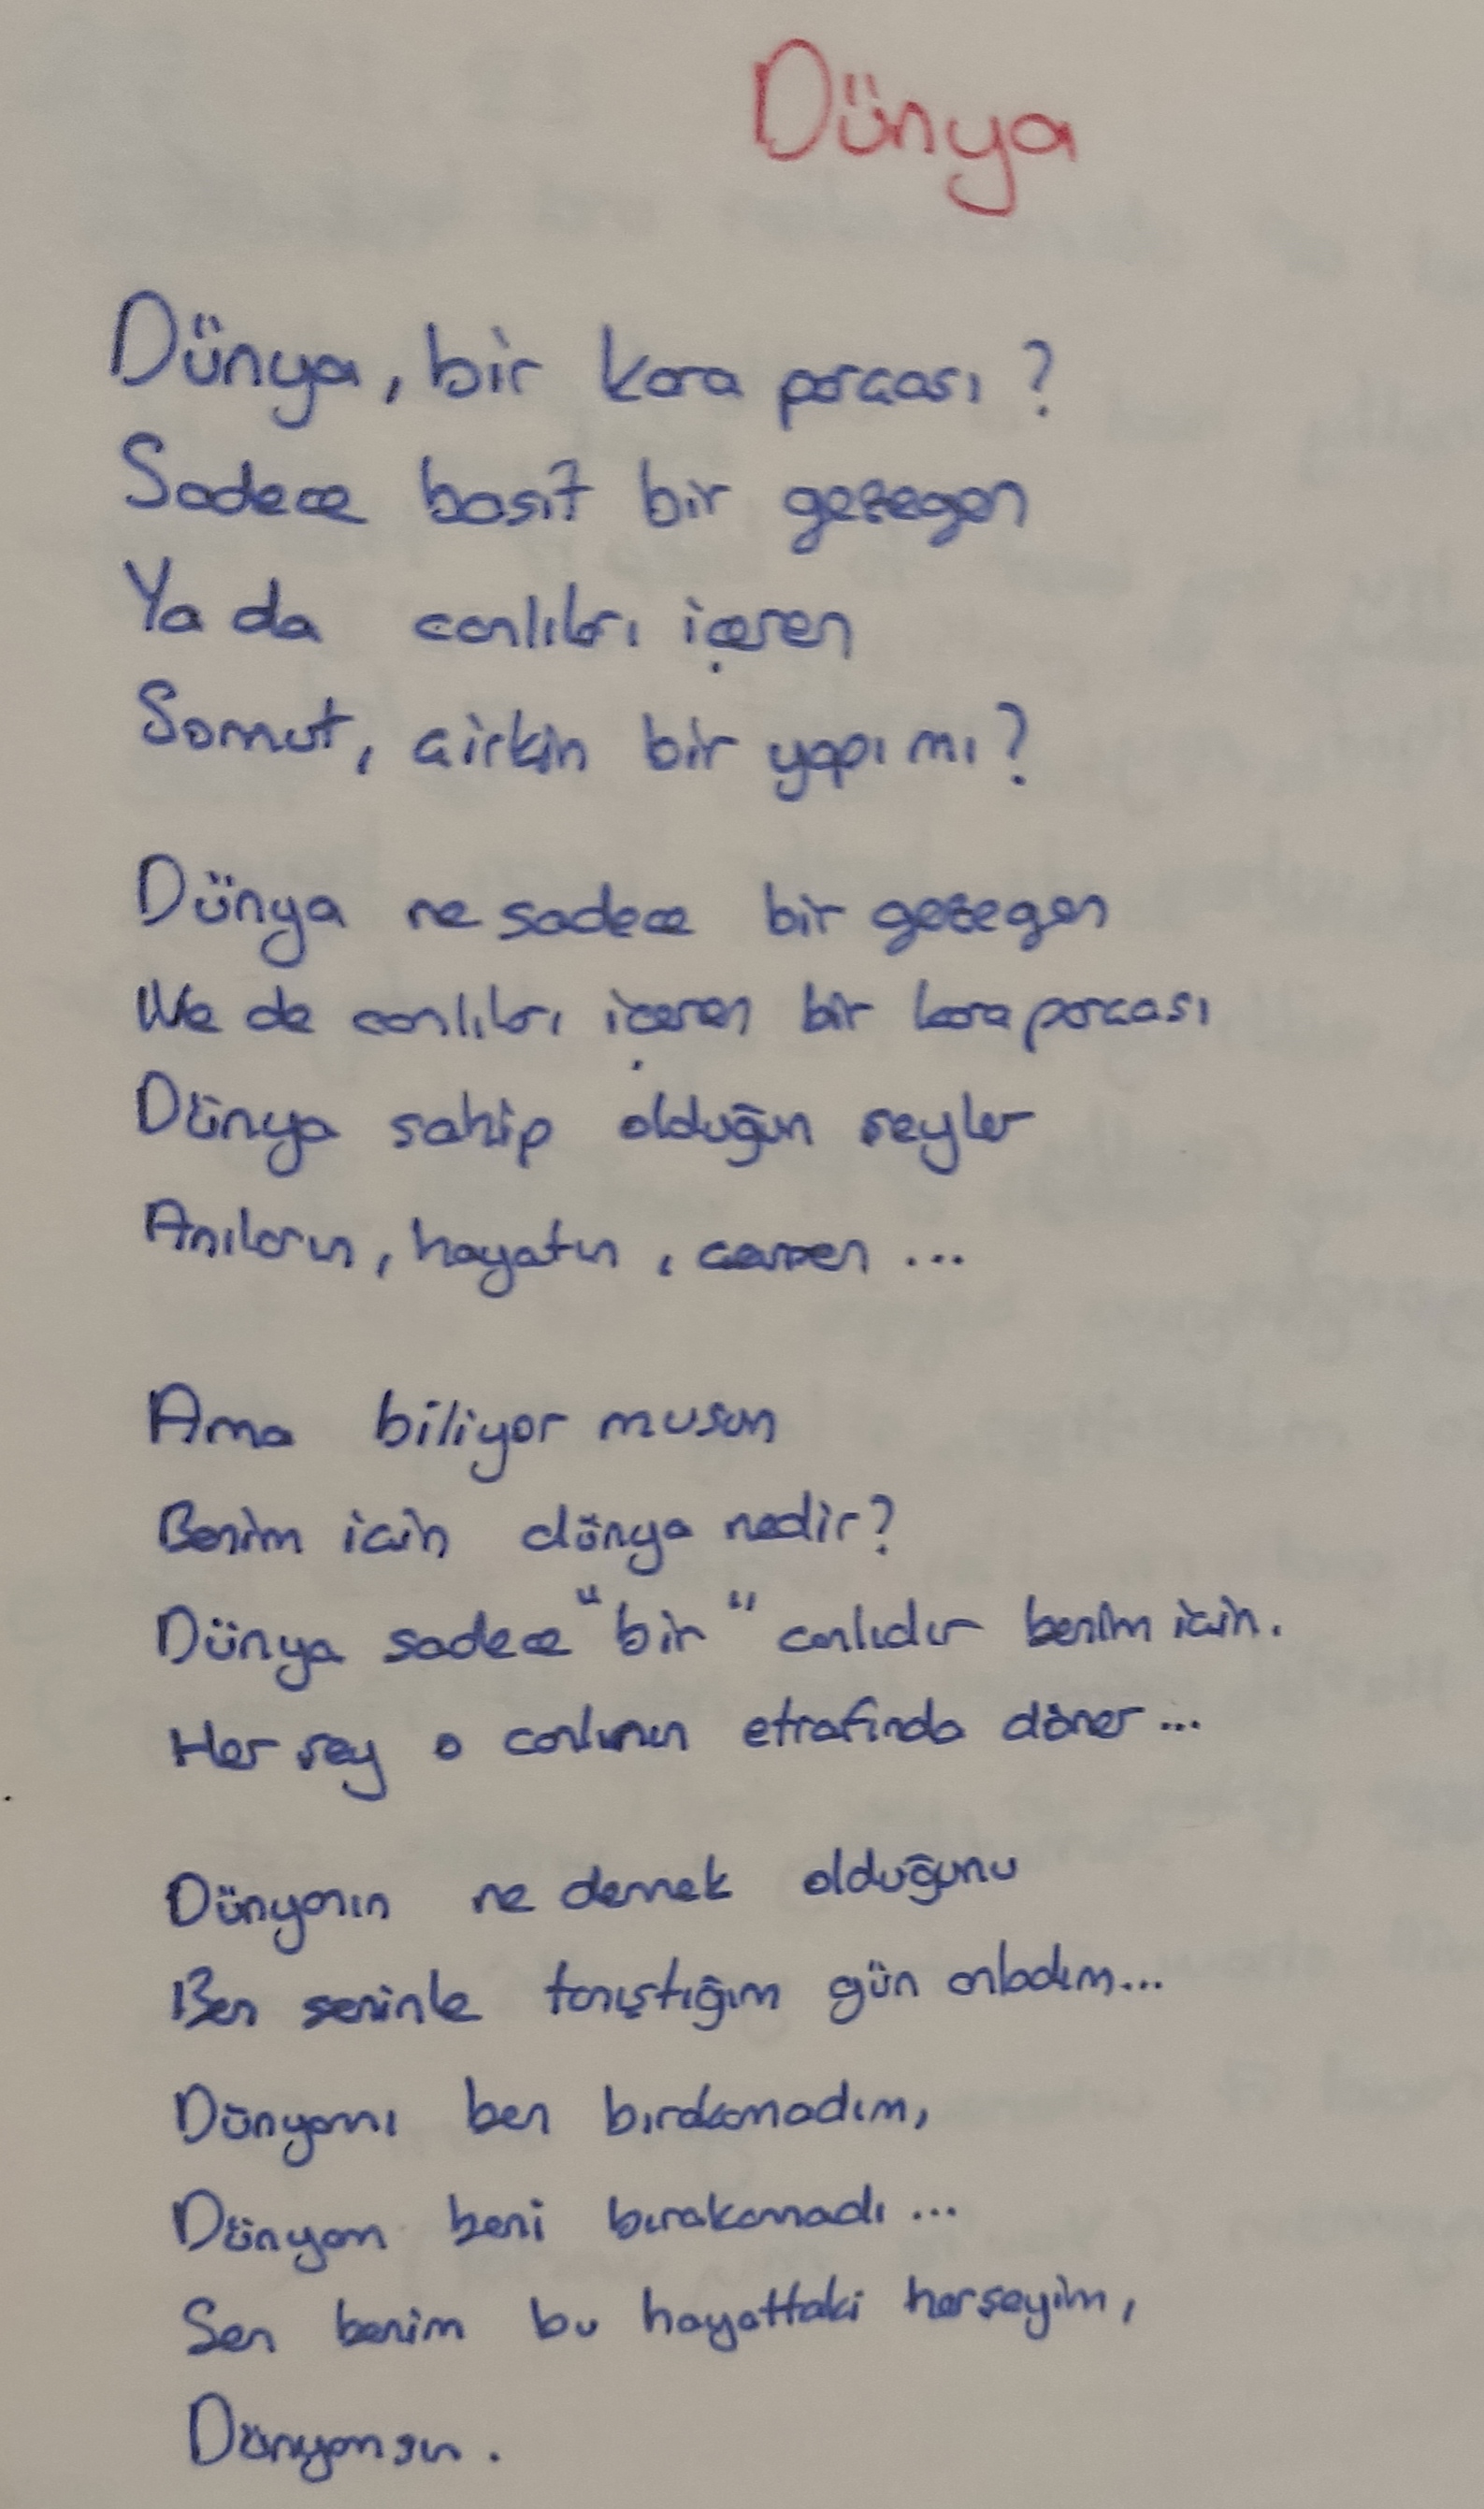 Dünya
Dünya, bir kara parçası?
Sadece basit bir gezegen
Ya da canlıları içeren
Somut, çirkin bir yapı mı?
Dünya ne sadece bir gezegen
Ne de canlıları içeren bir kara parçası
Dünya sahip olduğun şeyler
Anıların, hayatın, çevren ...
Ama biliyor musun
Benim için dünya nedir?
Dünya sadece "bir" canlıdır benim için.
Her şey o canlının etrafında döner...
Dünyanın ne demek olduğunu
Ben seninle tanıştığım gün anladım...
Dünyamı ben bırakamadım,
Dünyam beni bırakamadı ...
Sen benim bu hayattaki herşeyim,
Dünyamsın.